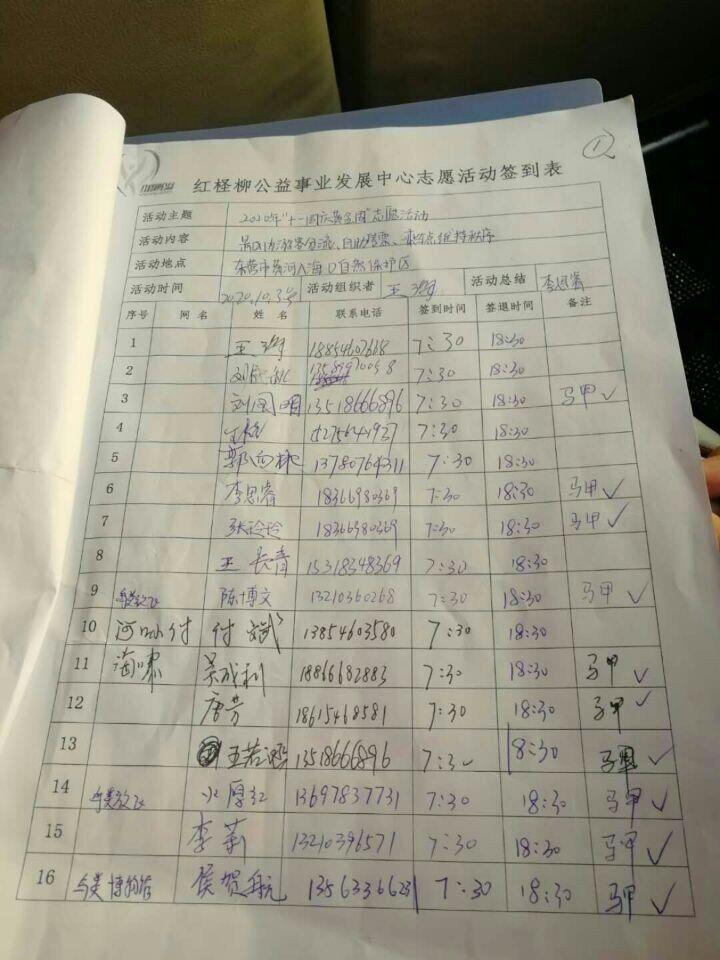 ①
红柽柳公益事业发展中心志愿活动签到表
活动主题 2020年"十一国庆黄金周"志愿活动
活动内容 景区内游客分流、自助售票、乘车点维持秩序
活动地点 东营市黄河入海口自然保护区
活动时间 2020.10.3号 活动组织者 王 活动总结 李思睿
序号 网名 姓名 联系电话 签到时间 签退时间 备注
1 王 18854607668 7:30 18:30
2 7:30 18:30
3 刘国明 13518666896 7:30 18:30 马甲 ✓
4 15275641937 7:30 18:30
5 13780764311 7:30 18:30
6 李思睿 18366980369 7:30 18:30 马甲 ✓
7 张玲玲 18366980369 7:30 18:30 马甲 ✓
8 王长青 15318348369 7:30 18:30
9 陈博文 13210360268 7:30 18:30 马甲 ✓
10 付斌 13854603580 7:30 18:30
11 海啸 吴成利 18866682883 7:30 18:30 马甲 ✓
12 唐芳 18615468581 7:30 18:30 马甲 ✓
13 王若涵 13518666896 7:30 18:30 马甲 ✓
14 水厚红 13697837731 7:30 18:30 马甲 ✓
15 李莉 13210396571 7:30 18:30 马甲 ✓
16 侯贺航 13563366231 7:30 18:30 马甲 ✓